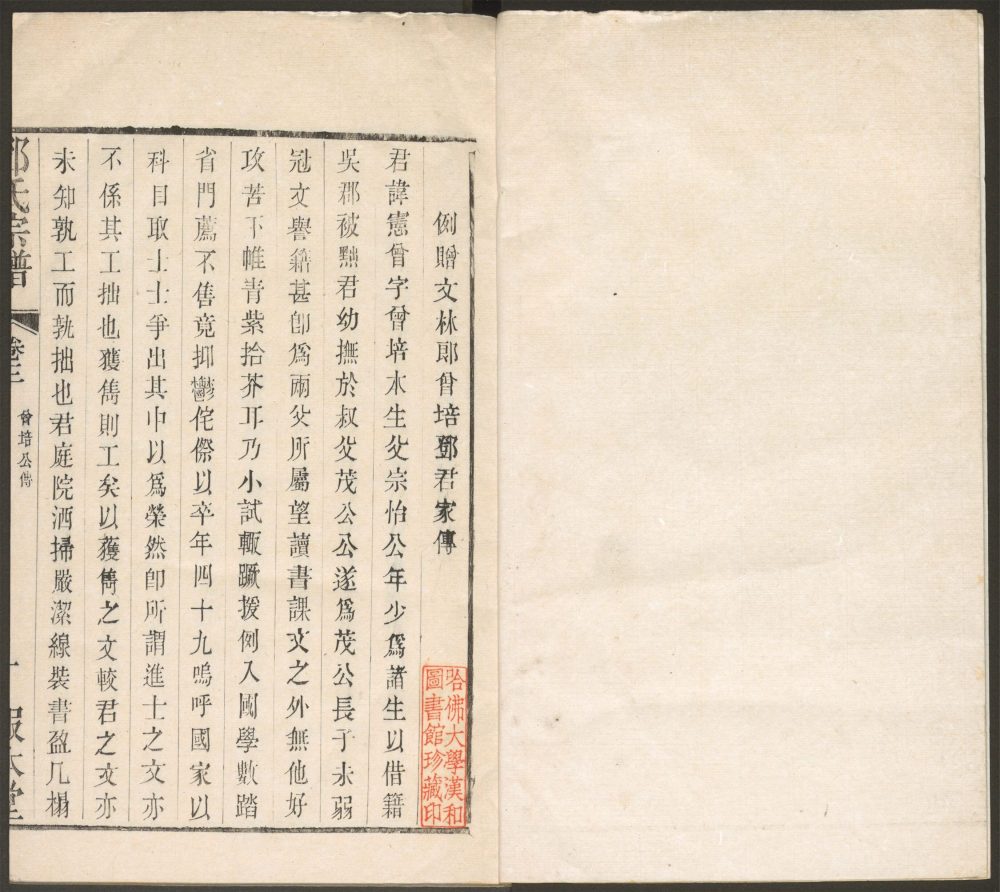 例贈文林郎曾培鄧君家傳
君諱憲曾字曾培本生父宗怡公年少爲諸生以借籍
吳郡被黜君幼撫於叔父茂公公遂爲茂公長子未弱
冠文譽籍甚卽爲兩父所屬望讀書課文之外無他好
攻苦下帷青紫拾芥耳乃小試輙蹶援例入國學數踏
省門薦不售竟抑鬱侘傺以卒年四十九嗚呼國家以
科目取士士爭出其中以爲榮然卽所謂進士之文亦
不係其工拙也獲雋則工矣以獲雋之文較君之文亦
未知孰工而孰拙也君庭院洒掃嚴潔線裝書盈几榻
鄧氏宗譜
卷三
曾培公傳
一
報本堂
哈佛大學漢和
圖書館珍藏印